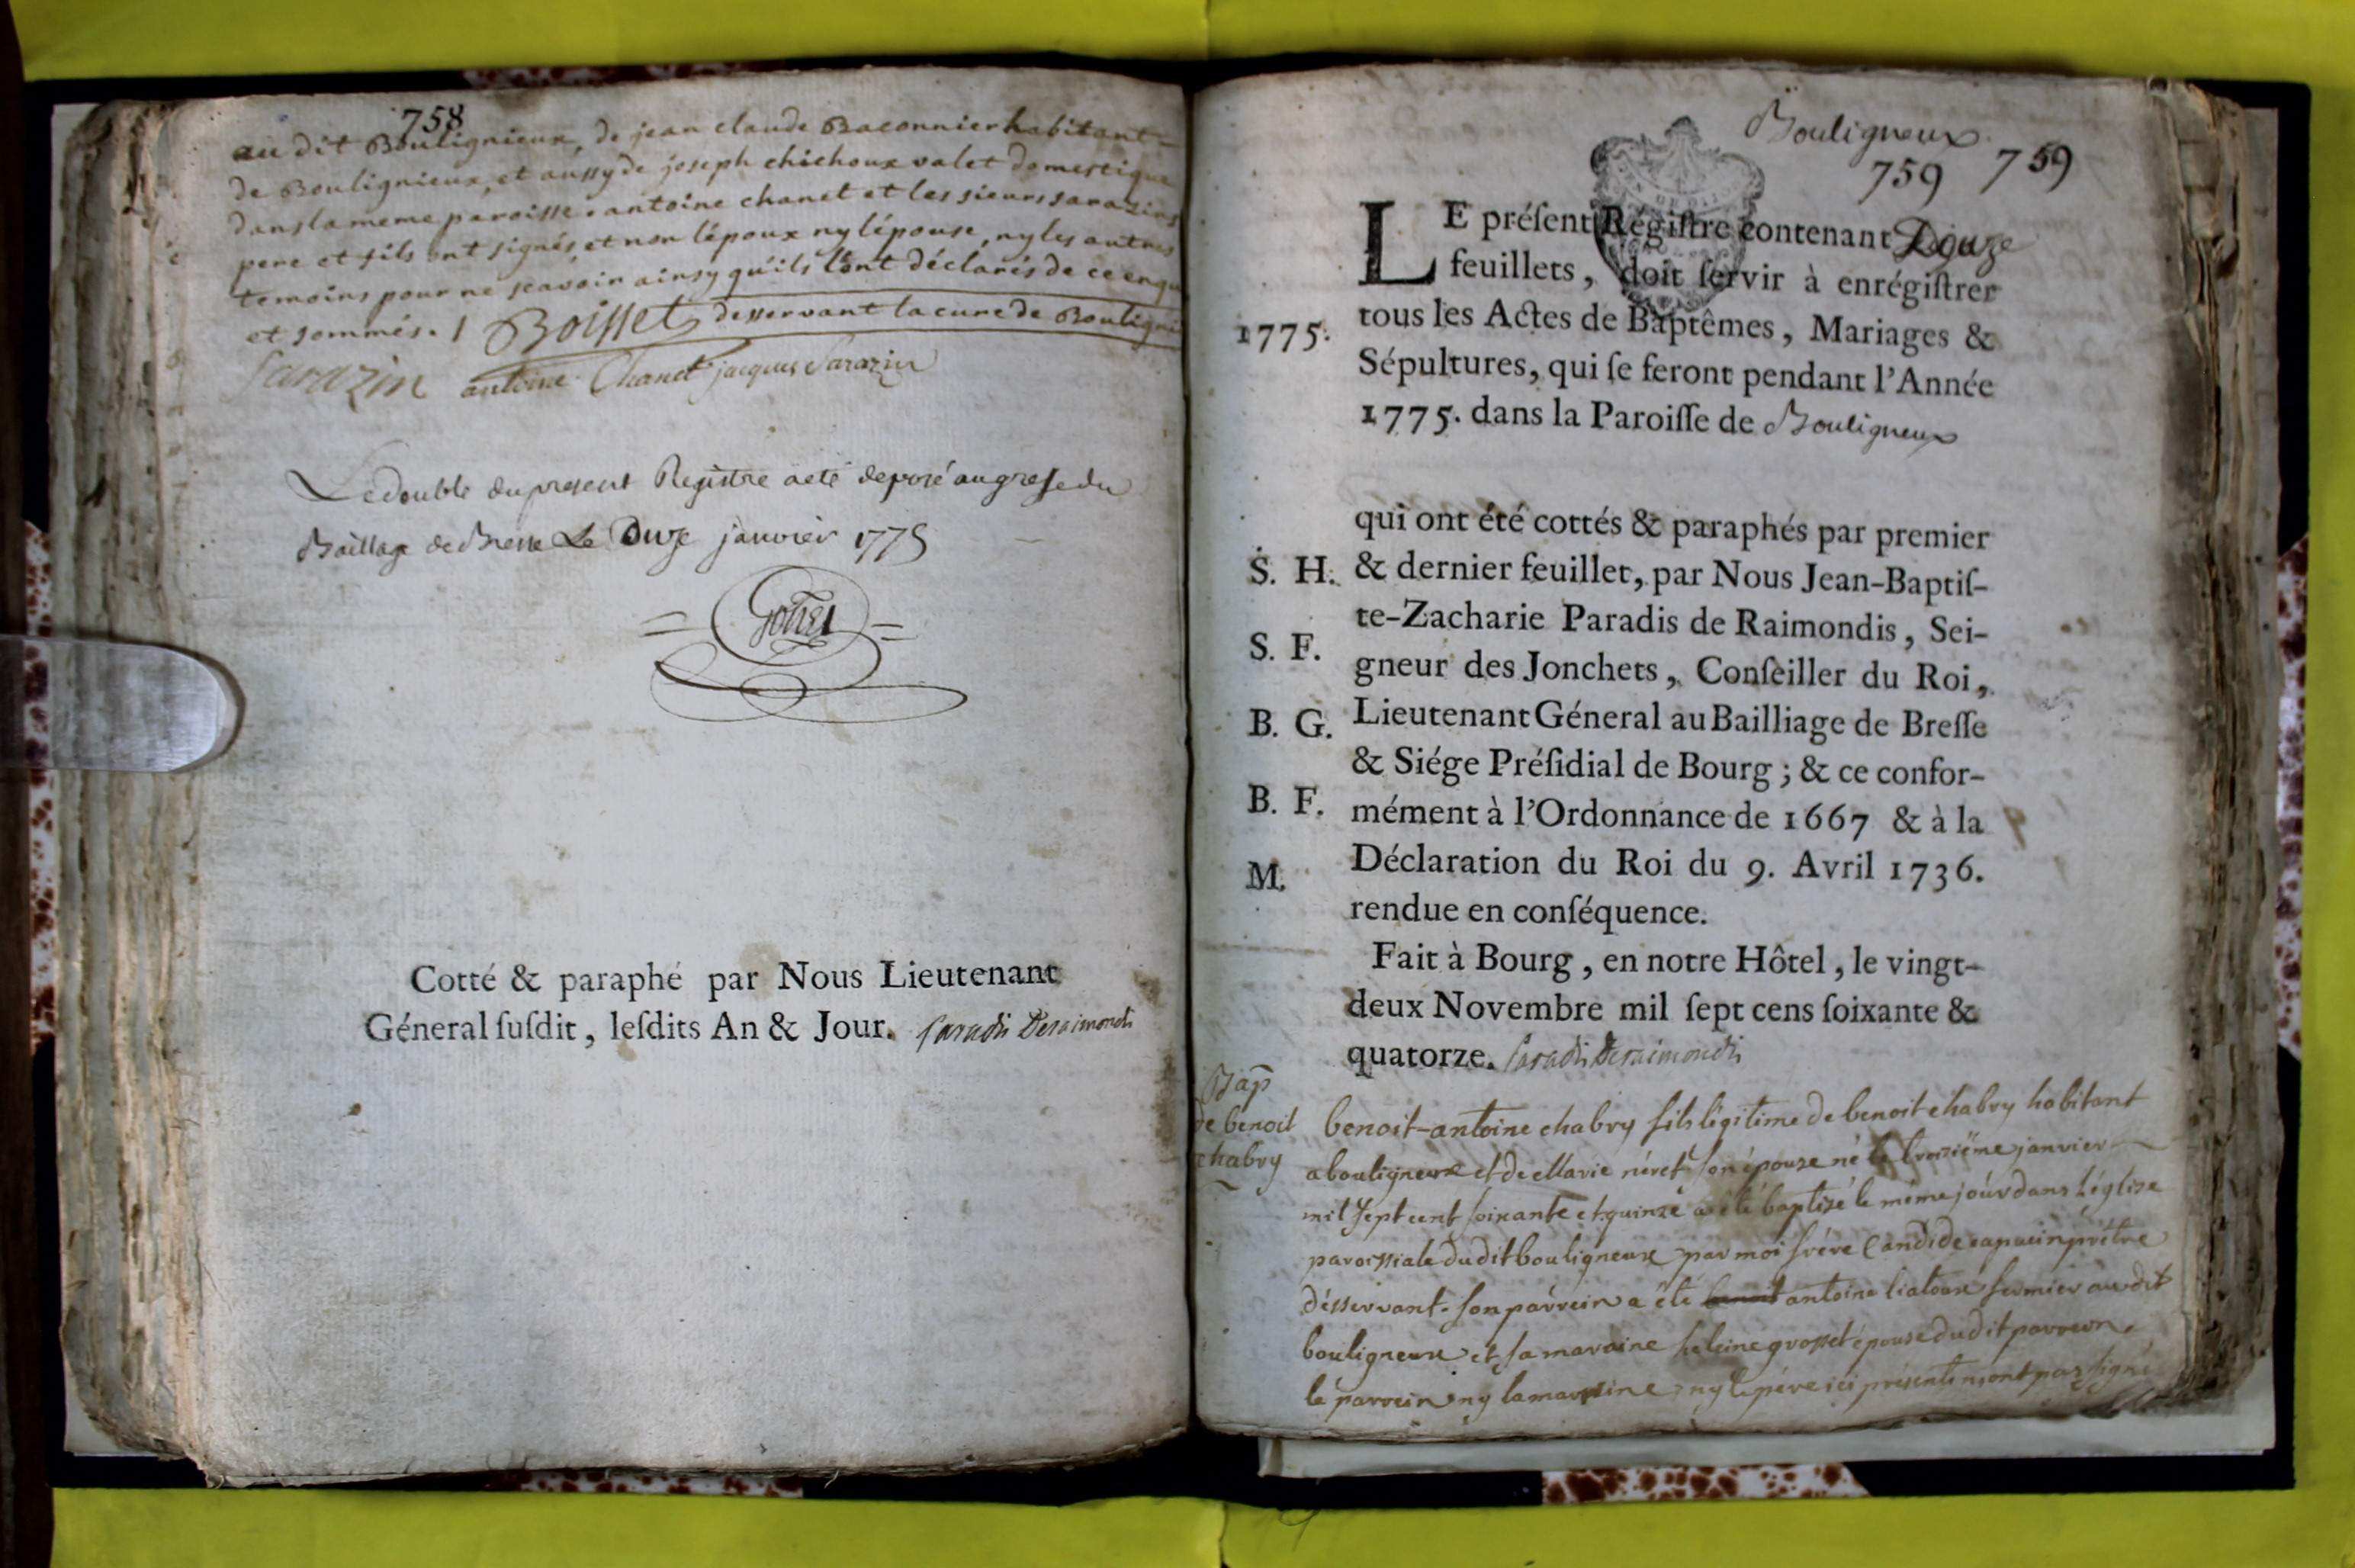 758
au dit Boulignieux, de jean claude Baconnier habitant
de Boulignieux, et aussy de joseph chichoux valet domestique
dans la meme paroisse. antoine chanet et les sieurs sarazins
pere et fils ont signés, et non l'époux ny l'épouse, ny les autres
temoins pour ne sçavoir ainsy qu'ils l'ont déclarés de ce enqu
et sommés. / Boisset desservant la cure de Bouligni
Sarazin antoine Chanet jacques Sarazin
Le double du present Registre a eté deposé au grefe du
Baillage de Bresse Le Onze janvier 1775
Cotté & paraphé par Nous Lieutenant
Géneral suſdit, leſdits An & Jour. Paradis Deraimondis
Bouligneux
759 759
LE préſent Régiſtre contenant Douze
feuillets, doit ſervir à enrégiſtrer
1775. tous les Actes de Baptêmes, Mariages &
Sépultures, qui ſe feront pendant l'Année
1775. dans la Paroiſſe de Bouligneux
qui ont été cottés & paraphés par premier
S. H. & dernier feuillet, par Nous Jean-Baptiſ-
te-Zacharie Paradis de Raimondis, Sei-
S. F. gneur des Jonchets, Conſeiller du Roi,
B. G. Lieutenant Géneral au Bailliage de Breſſe
& Siége Préſidial de Bourg ; & ce confor-
B. F. mément à l'Ordonnance de 1667 & à la
M. Déclaration du Roi du 9. Avril 1736.
rendue en conſéquence.
Fait à Bourg, en notre Hôtel, le vingt-
deux Novembre mil ſept cens ſoixante &
quatorze. Paradis Deraimondis
Bap
de benoit
chabry
benoit-antoine chabry fils légitime de benoit chabry habitant
a bouligneux et de Marie néret son épouse né le troisiëme janvier
mil sept cent soixante et quinze a été baptisé le même jour dans l'église
paroissiale dudit bouligneux par moi frére Candide capucin prétre
désservant. son parrein a été antoine fermier audit
bouligneux et sa maraine heleine grosset épouse dudit parrein.
le parrein ny la marreine, ny le pére ici présents n'ont pas signé